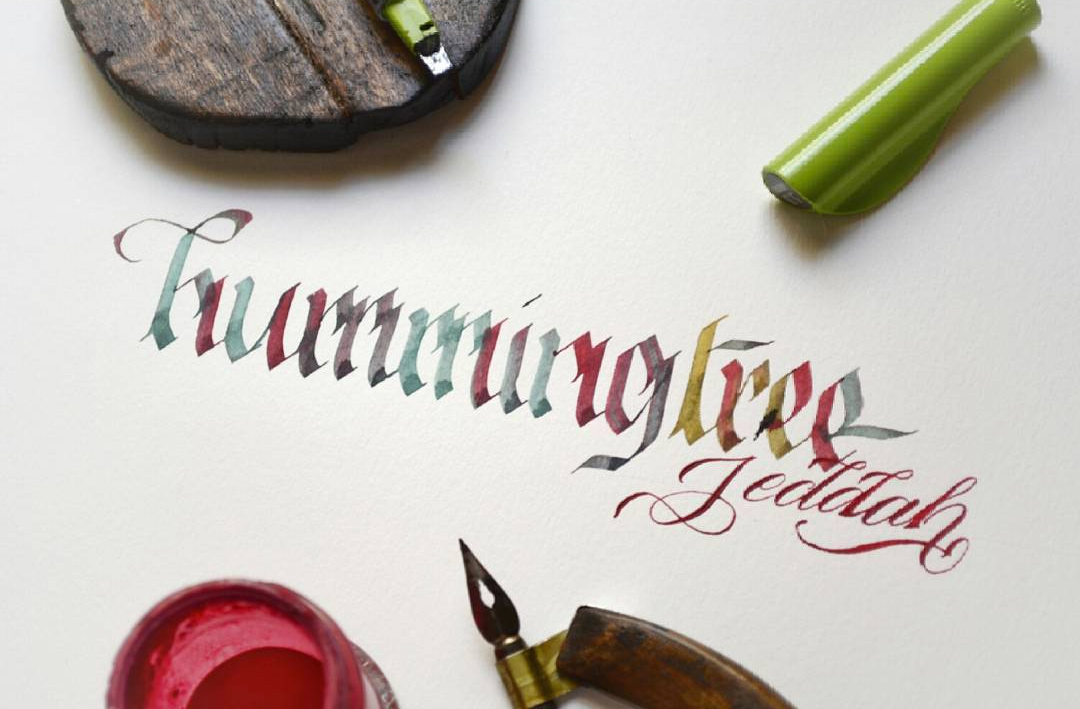 hummingtree
Jeddah